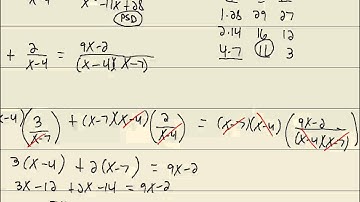 x-4 x²-11x+28
PSD
1·28 29 27
2·14 16 12
4·7 11 3
+ 2/(x-4) = (9x-2)/((x-4)(x-7))
x-4)(3/(x-7)) + (x-7)(x-4)(2/(x-4)) = (x-7)(x-4)((9x-2)/((x-4)(x-7)))
3(x-4) + 2(x-7) = 9x-2
3x-12 + 2x-14 = 9x-2